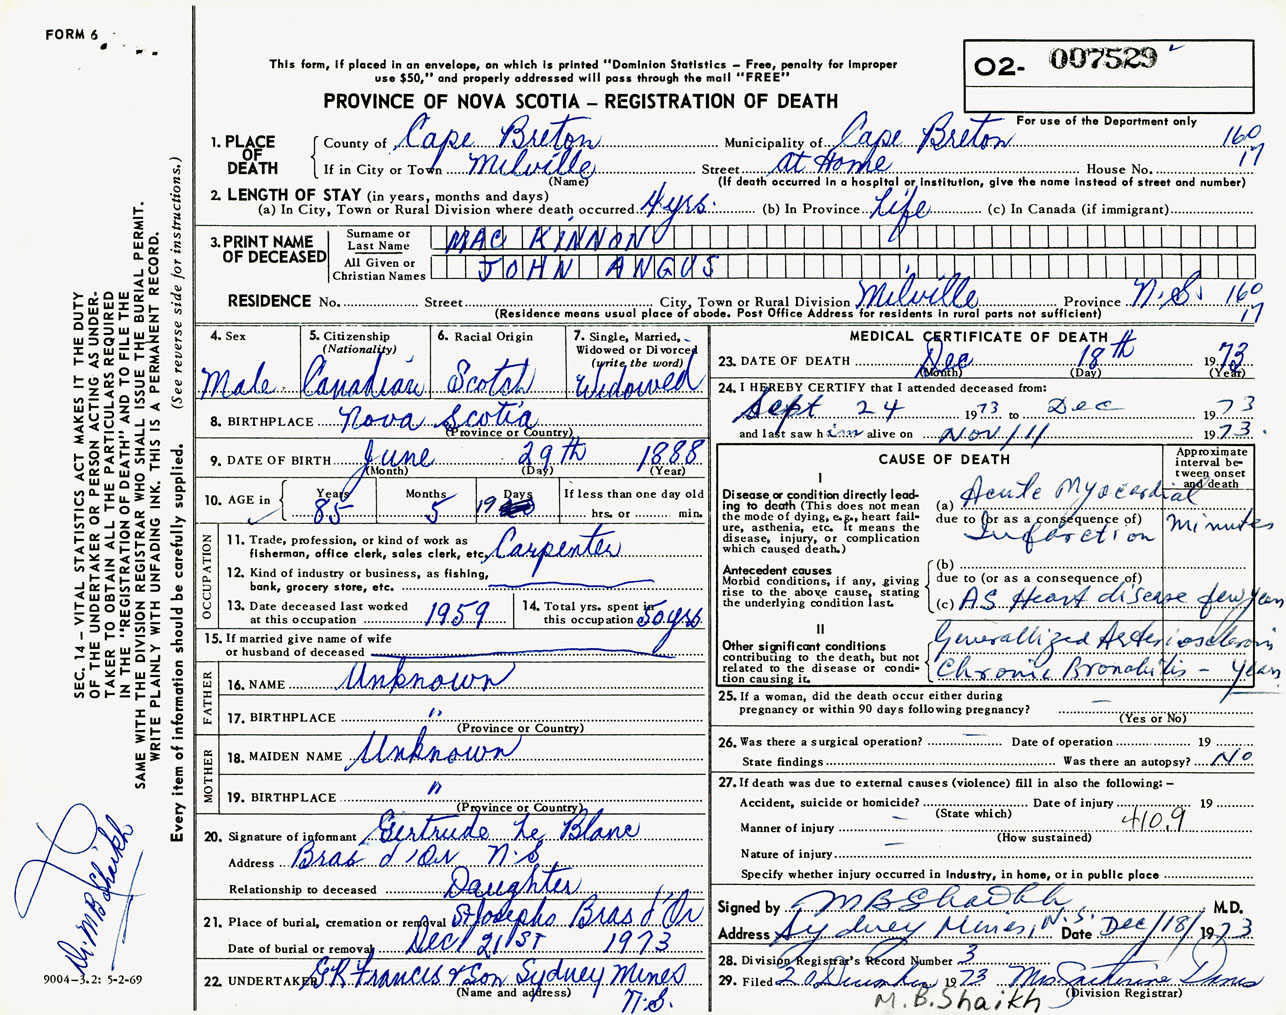 FORM 6
This form, if placed in an envelope, on which is printed "Dominion Statistics – Free, penalty for improper
use $50," and properly addressed will pass through the mail "FREE"
PROVINCE OF NOVA SCOTIA – REGISTRATION OF DEATH
02- 007529
For use of the Department only
1. PLACE OF DEATH
County of Cape Breton Municipality of Cape Breton 160
If in City or Town Milville Street at Home House No. 17
(Name) (If death occurred in a hospital or institution, give the name instead of street and number)
2. LENGTH OF STAY (in years, months and days)
(a) In City, Town or Rural Division where death occurred 4 yrs. (b) In Province Life (c) In Canada (if immigrant)
3. PRINT NAME OF DECEASED
Surname or Last Name MAC KINNON
All Given or Christian Names JOHN ANGUS
RESIDENCE No. Street City, Town or Rural Division Milville Province N.S. 160
(Residence means usual place of abode. Post Office Address for residents in rural parts not sufficient) 17
4. Sex
Male
5. Citizenship
(Nationality)
Canadian
6. Racial Origin
Scotch
7. Single, Married,
Widowed or Divorced
(write the word)
Widowed
8. BIRTHPLACE Nova Scotia
(Province or Country)
9. DATE OF BIRTH June 29th 1888
(Month) (Day) (Year)
10. AGE in
Years Months Days If less than one day old
85 5 19 hrs. or min.
OCCUPATION
11. Trade, profession, or kind of work as
fisherman, office clerk, sales clerk, etc. Carpenter
12. Kind of industry or business, as fishing,
bank, grocery store, etc.
13. Date deceased last worked
at this occupation 1959
14. Total yrs. spent in
this occupation 50 yrs
15. If married give name of wife
or husband of deceased
FATHER
16. NAME Unknown
17. BIRTHPLACE "
(Province or Country)
MOTHER
18. MAIDEN NAME Unknown
19. BIRTHPLACE "
(Province or Country)
20. Signature of informant Gertrude Le Blanc
Address Bras d'Or N.S.
Relationship to deceased Daughter
21. Place of burial, cremation or removal St Josephs Bras d'Or
Date of burial or removal Dec 21ST 1973
22. UNDERTAKER GR Francis & Son Sydney Mines
(Name and address) N.S.
MEDICAL CERTIFICATE OF DEATH
23. DATE OF DEATH Dec 18th 1973
(Month) (Day) (Year)
24. I HEREBY CERTIFY that I attended deceased from:
Sept 24 1973 to Dec 1973
and last saw him alive on Nov/11 1973.
CAUSE OF DEATH
Approximate
interval be-
tween onset
and death
I
Disease or condition directly lead-
ing to death (This does not mean
the mode of dying, e.g., heart fail-
ure, asthenia, etc. It means the
disease, injury, or complication
which caused death.)
(a) Acute Myocardial
due to (or as a consequence of)
Infarction minutes
Antecedent causes
Morbid conditions, if any, giving
rise to the above cause, stating
the underlying condition last.
(b)
due to (or as a consequence of)
(c) AS Heart disease few years
II
Other significant conditions
contributing to the death, but not
related to the disease or condi-
tion causing it.
Generallized Arteriosclerosis
Chronic Bronchitis - years
25. If a woman, did the death occur either during
pregnancy or within 90 days following pregnancy? –
(Yes or No)
26. Was there a surgical operation? – Date of operation 19
State findings Was there an autopsy? No
27. If death was due to external causes (violence) fill in also the following: –
Accident, suicide or homicide? Date of injury 19
(State which)
Manner of injury – 410.9
(How sustained)
Nature of injury –
Specify whether injury occurred in industry, in home, or in public place
Signed by MBShaikh M.D.
Address Sydney Mines, N.S. Date Dec/18/1973
28. Division Registrar's Record Number 3
29. Filed 20 December 1973 Mrs.
(Division Registrar)
M.B.Shaikh
SEC. 14 – VITAL STATISTICS ACT MAKES IT THE DUTY
OF THE UNDERTAKER OR PERSON ACTING AS UNDER-
TAKER TO OBTAIN ALL THE PARTICULARS REQUIRED
IN THE "REGISTRATION OF DEATH" AND TO FILE THE
SAME WITH THE DIVISION REGISTRAR WHO SHALL ISSUE THE BURIAL PERMIT.
WRITE PLAINLY WITH UNFADING INK. THIS IS A PERMANENT RECORD.
Every item of information should be carefully supplied. (See reverse side for instructions.)
Dr MB Shaikh
9004-3.2: 5-2-69